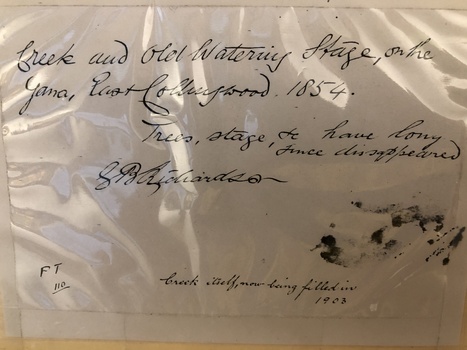 Creek and Old Watering Stage, on the
Yarra, East Collingwood. 1854.
Trees, stage, &c have long
since disappeared
G B Richardson
FT
110
Creek itself, now being filled in
1903